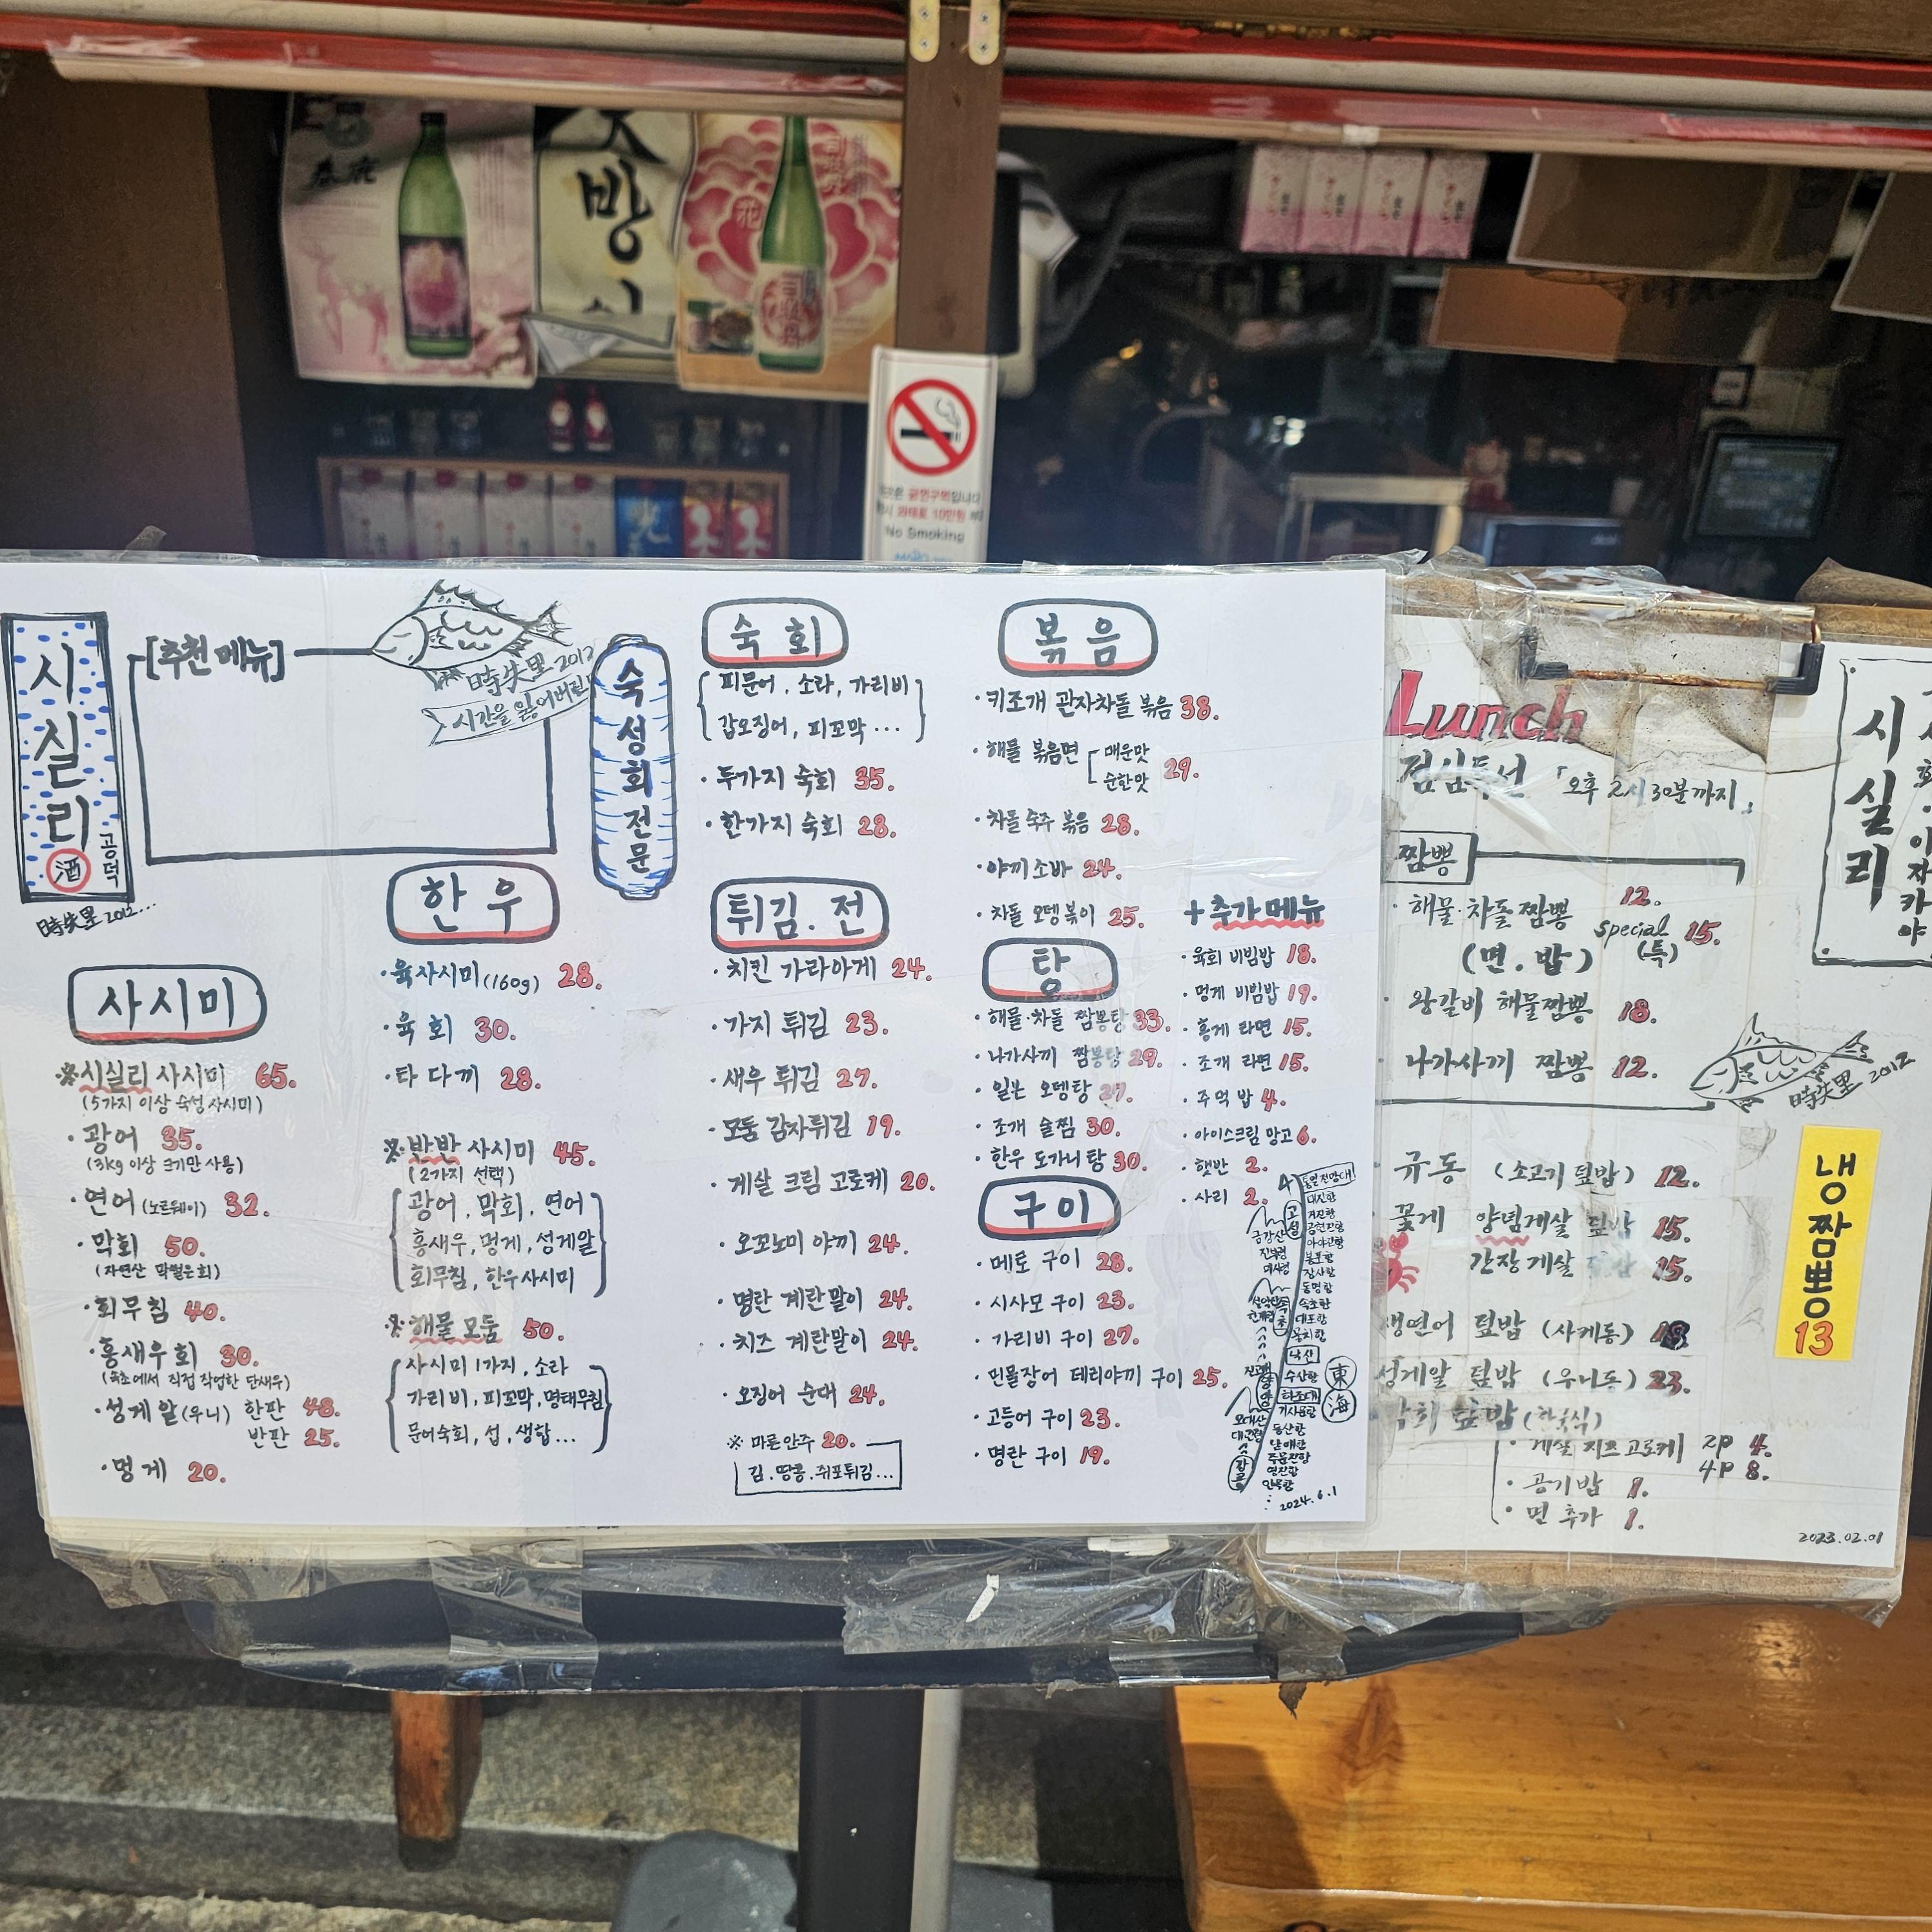 春鹿
방
花
司牡丹
금연구역입니다
과태료 10만원
No Smoking
시실리
酒
공덕
時失里 2012...
[추천 메뉴]
時失里 2012
시간을 잃어버린
숙성회전문
사시미
※시실리 사시미 65.
(5가지 이상 숙성 사시미)
· 광어 35.
(3kg 이상 크기만 사용)
· 연어 (노르웨이) 32.
· 막회 50.
(자연산 막썰은회)
· 회무침 40.
· 홍새우회 30.
(속초에서 직접 작업한 단새우)
· 성게 알(우니) 한판 48.
반판 25.
· 멍게 20.
한우
· 육사시미(160g) 28.
· 육회 30.
· 타다끼 28.
※ 반반 사시미 45.
(2가지 선택)
광어, 막회, 연어
홍새우, 멍게, 성게알
회무침, 한우사시미
※ 해물 모둠 50.
사시미 1가지, 소라
가리비, 피꼬막, 명태무침
문어숙회, 섭, 생합...
숙회
피문어, 소라, 가리비
갑오징어, 피꼬막...
· 두가지 숙회 35.
· 한가지 숙회 28.
튀김. 전
· 치킨 가라아게 24.
· 가지 튀김 23.
· 새우 튀김 27.
· 모둠 감자튀김 19.
· 게살 크림 고로케 20.
· 오꼬노미 야끼 24.
· 명란 계란말이 24.
· 치즈 계란말이 24.
· 오징어 순대 24.
※ 마른안주 20.
김, 땅콩, 쥐포튀김...
볶음
· 키조개 관자차돌 볶음 38.
· 해물 볶음면 매운맛
순한맛 29.
· 차돌 숙주 볶음 28.
· 야끼소바 24.
· 차돌 오뎅볶이 25.
탕
· 해물·차돌 짬뽕탕 33.
· 나가사끼 짬뽕탕 29.
· 일본 오뎅탕 27.
· 조개 술찜 30.
· 한우 도가니탕 30.
구이
· 메로 구이 28.
· 시사모 구이 23.
· 가리비 구이 27.
· 민물장어 데리야끼 구이 25.
· 고등어 구이 23.
· 명란 구이 19.
+ 추가메뉴
· 육회 비빔밥 18.
· 멍게 비빔밥 19.
· 홍게 라면 15.
· 조개 라면 15.
· 주먹밥 4.
· 아이스크림 망고 6.
· 햇반 2.
· 사리 2.
통일전망대
대진항
거진항
공현진항
아야진항
봉포항
장사항
동명항
속초항
대포항
물치항
낙산
수산항
하조대
기사문항
동산항
남애항
주문진항
영진항
안목항
고성
금강산
진부령
미시령
속초
오대산
대관령
강릉
東海
2024.6.1
Lunch
점심특선 「오후 2시 30분까지」
짬뽕
· 해물·차돌 짬뽕 12.
(면, 밥) special (특) 15.
· 왕갈비 해물짬뽕 18.
· 나가사끼 짬뽕 12.
時失里 2012
· 규동 (소고기 덮밥) 12.
꽃게 양념게살 덮밥 15.
간장게살 덮밥 15.
생연어 덮밥 (사케동)
성게알 덮밥 (우니동) 23.
막회 덮밥 (한국식)
· 게살 치즈고로케 2P 4.
4P 8.
· 공기밥 1.
· 면 추가 1.
2023.02.01
시실리
이자카야
냉짬뽕
13